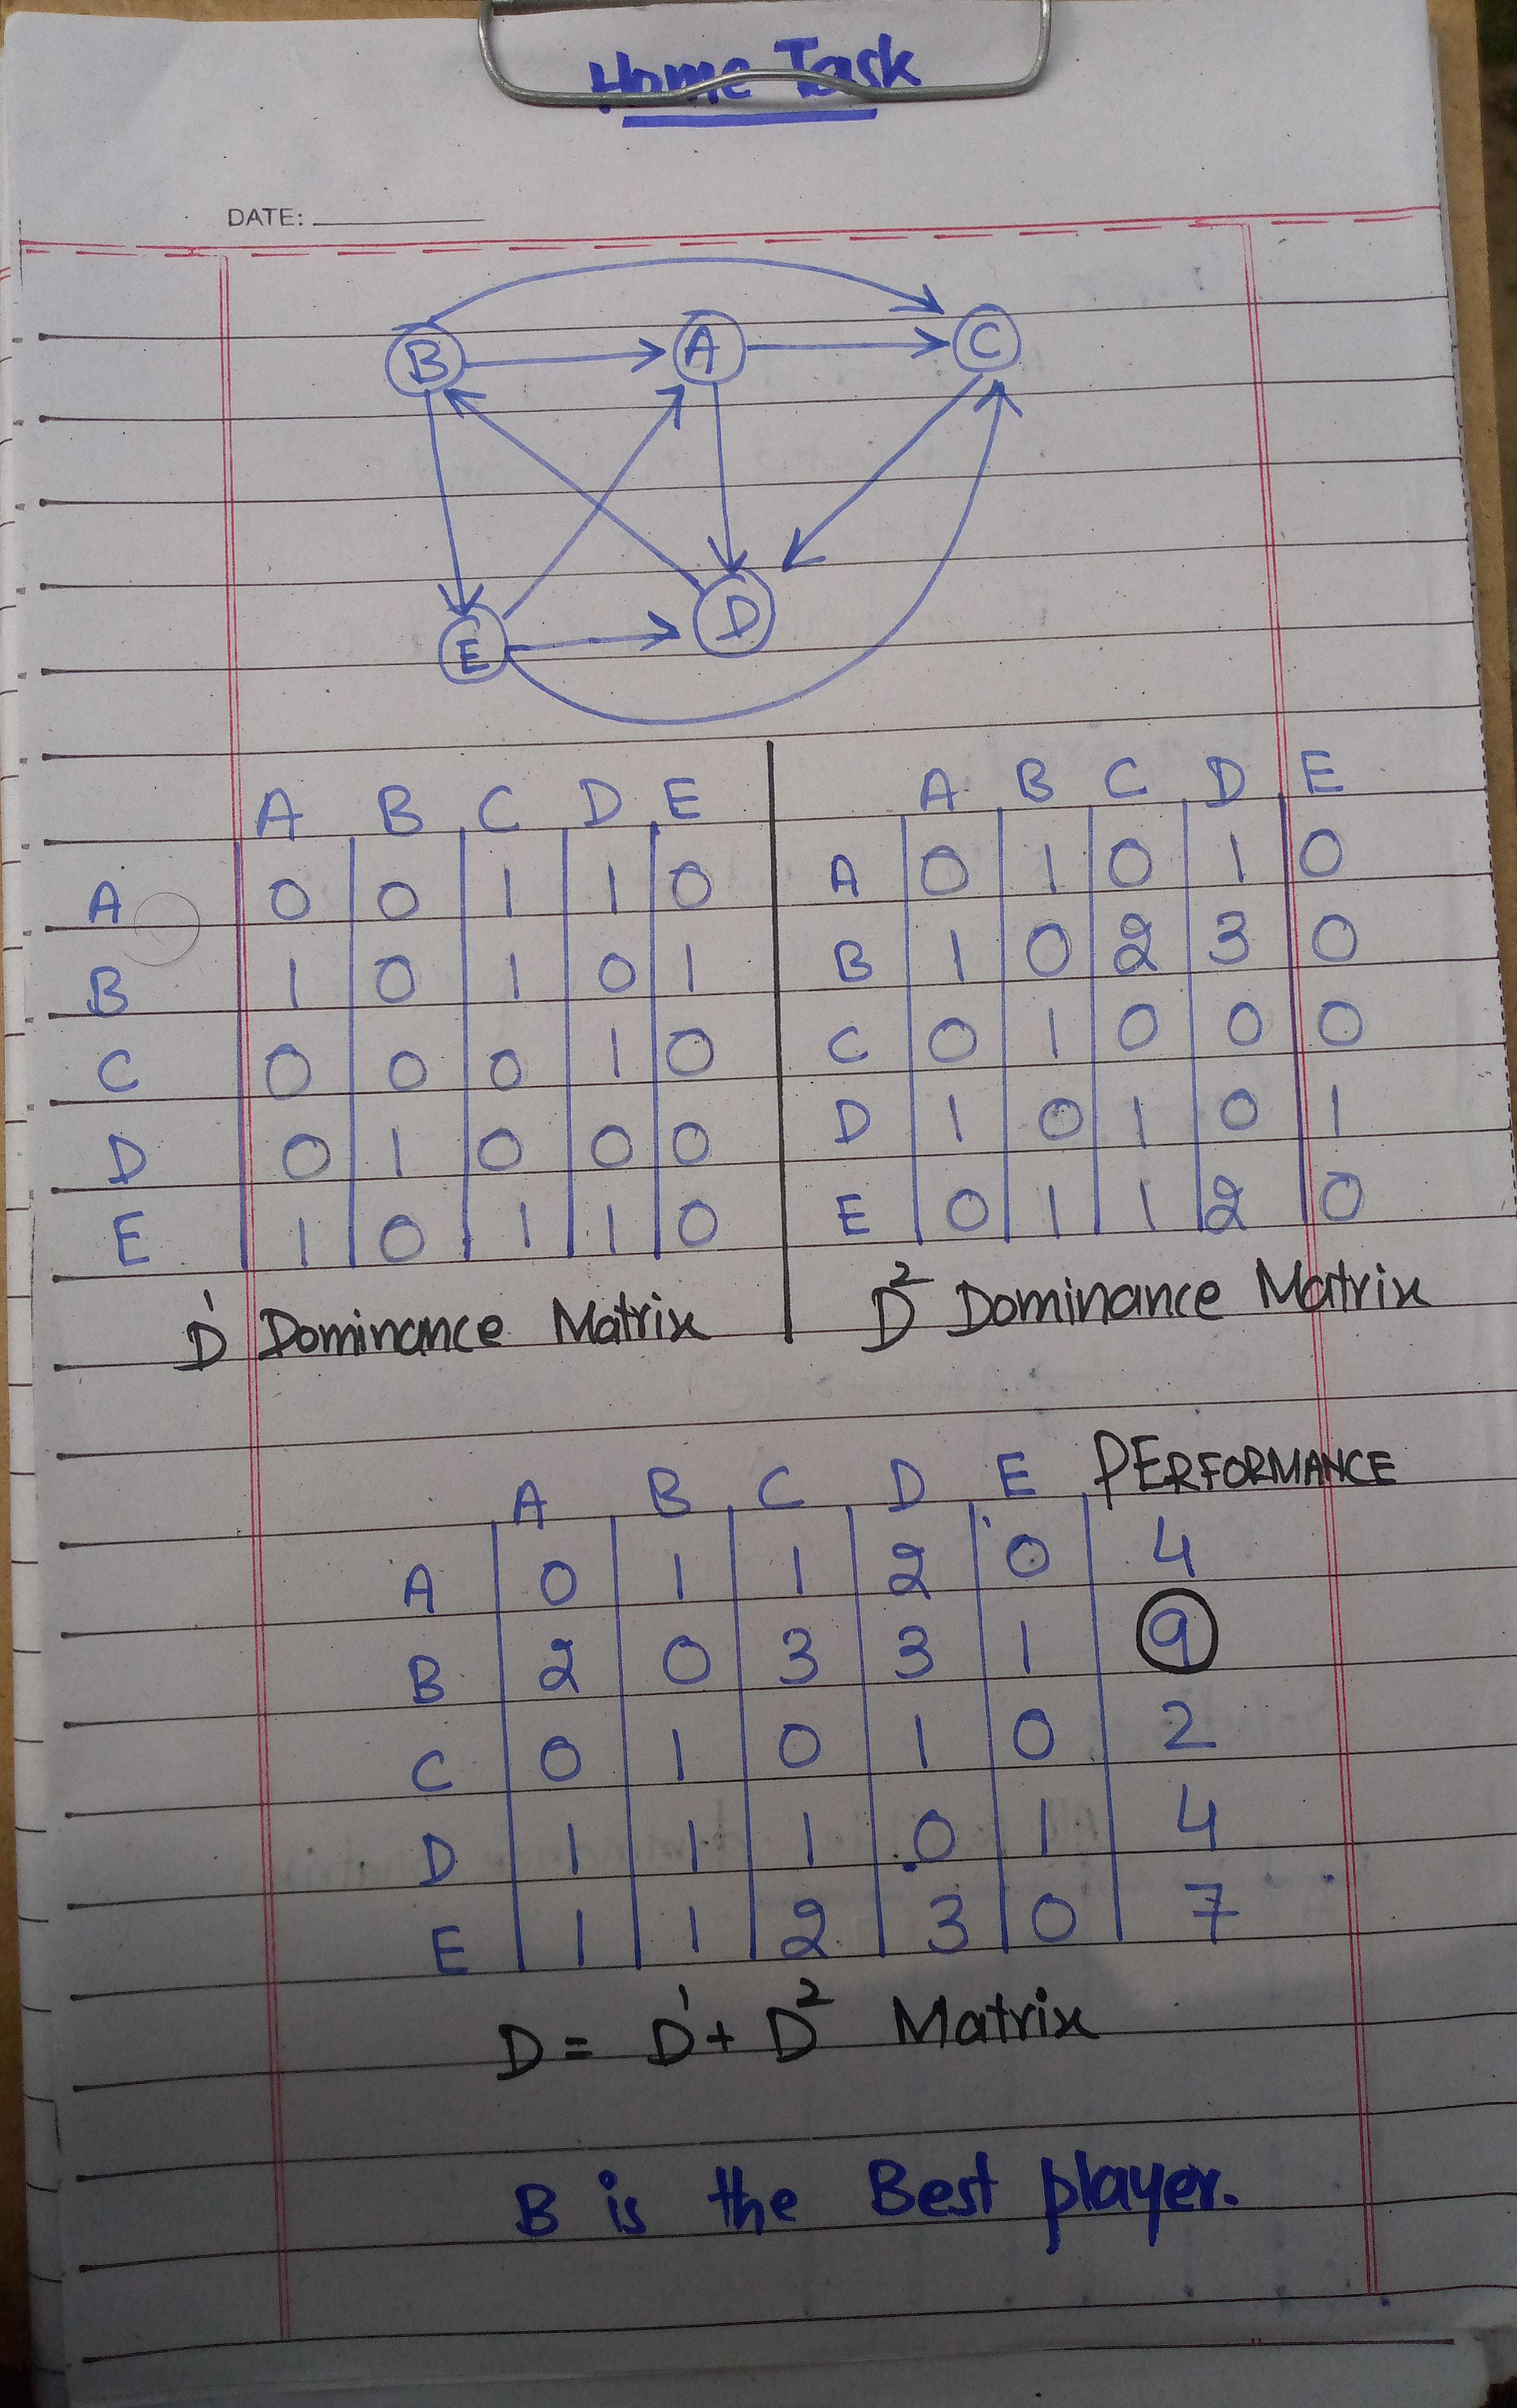 Home Task
DATE:
B A C
E D
A B C D E
A 0 0 1 1 0
B 1 0 1 0 1
C 0 0 0 1 0
D 0 1 0 0 0
E 1 0 1 1 0
D¹ Dominance Matrix
A B C D E
A 0 1 0 1 0
B 1 0 2 3 0
C 0 1 0 0 0
D 1 0 1 0 1
E 0 1 1 2 0
D² Dominance Matrix
A B C D E PERFORMANCE
A 0 1 1 2 0 4
B 2 0 3 3 1 9
C 0 1 0 1 0 2
D 1 1 1 0 1 4
E 1 1 2 3 0 7
D = D¹ + D² Matrix
B is the Best player.